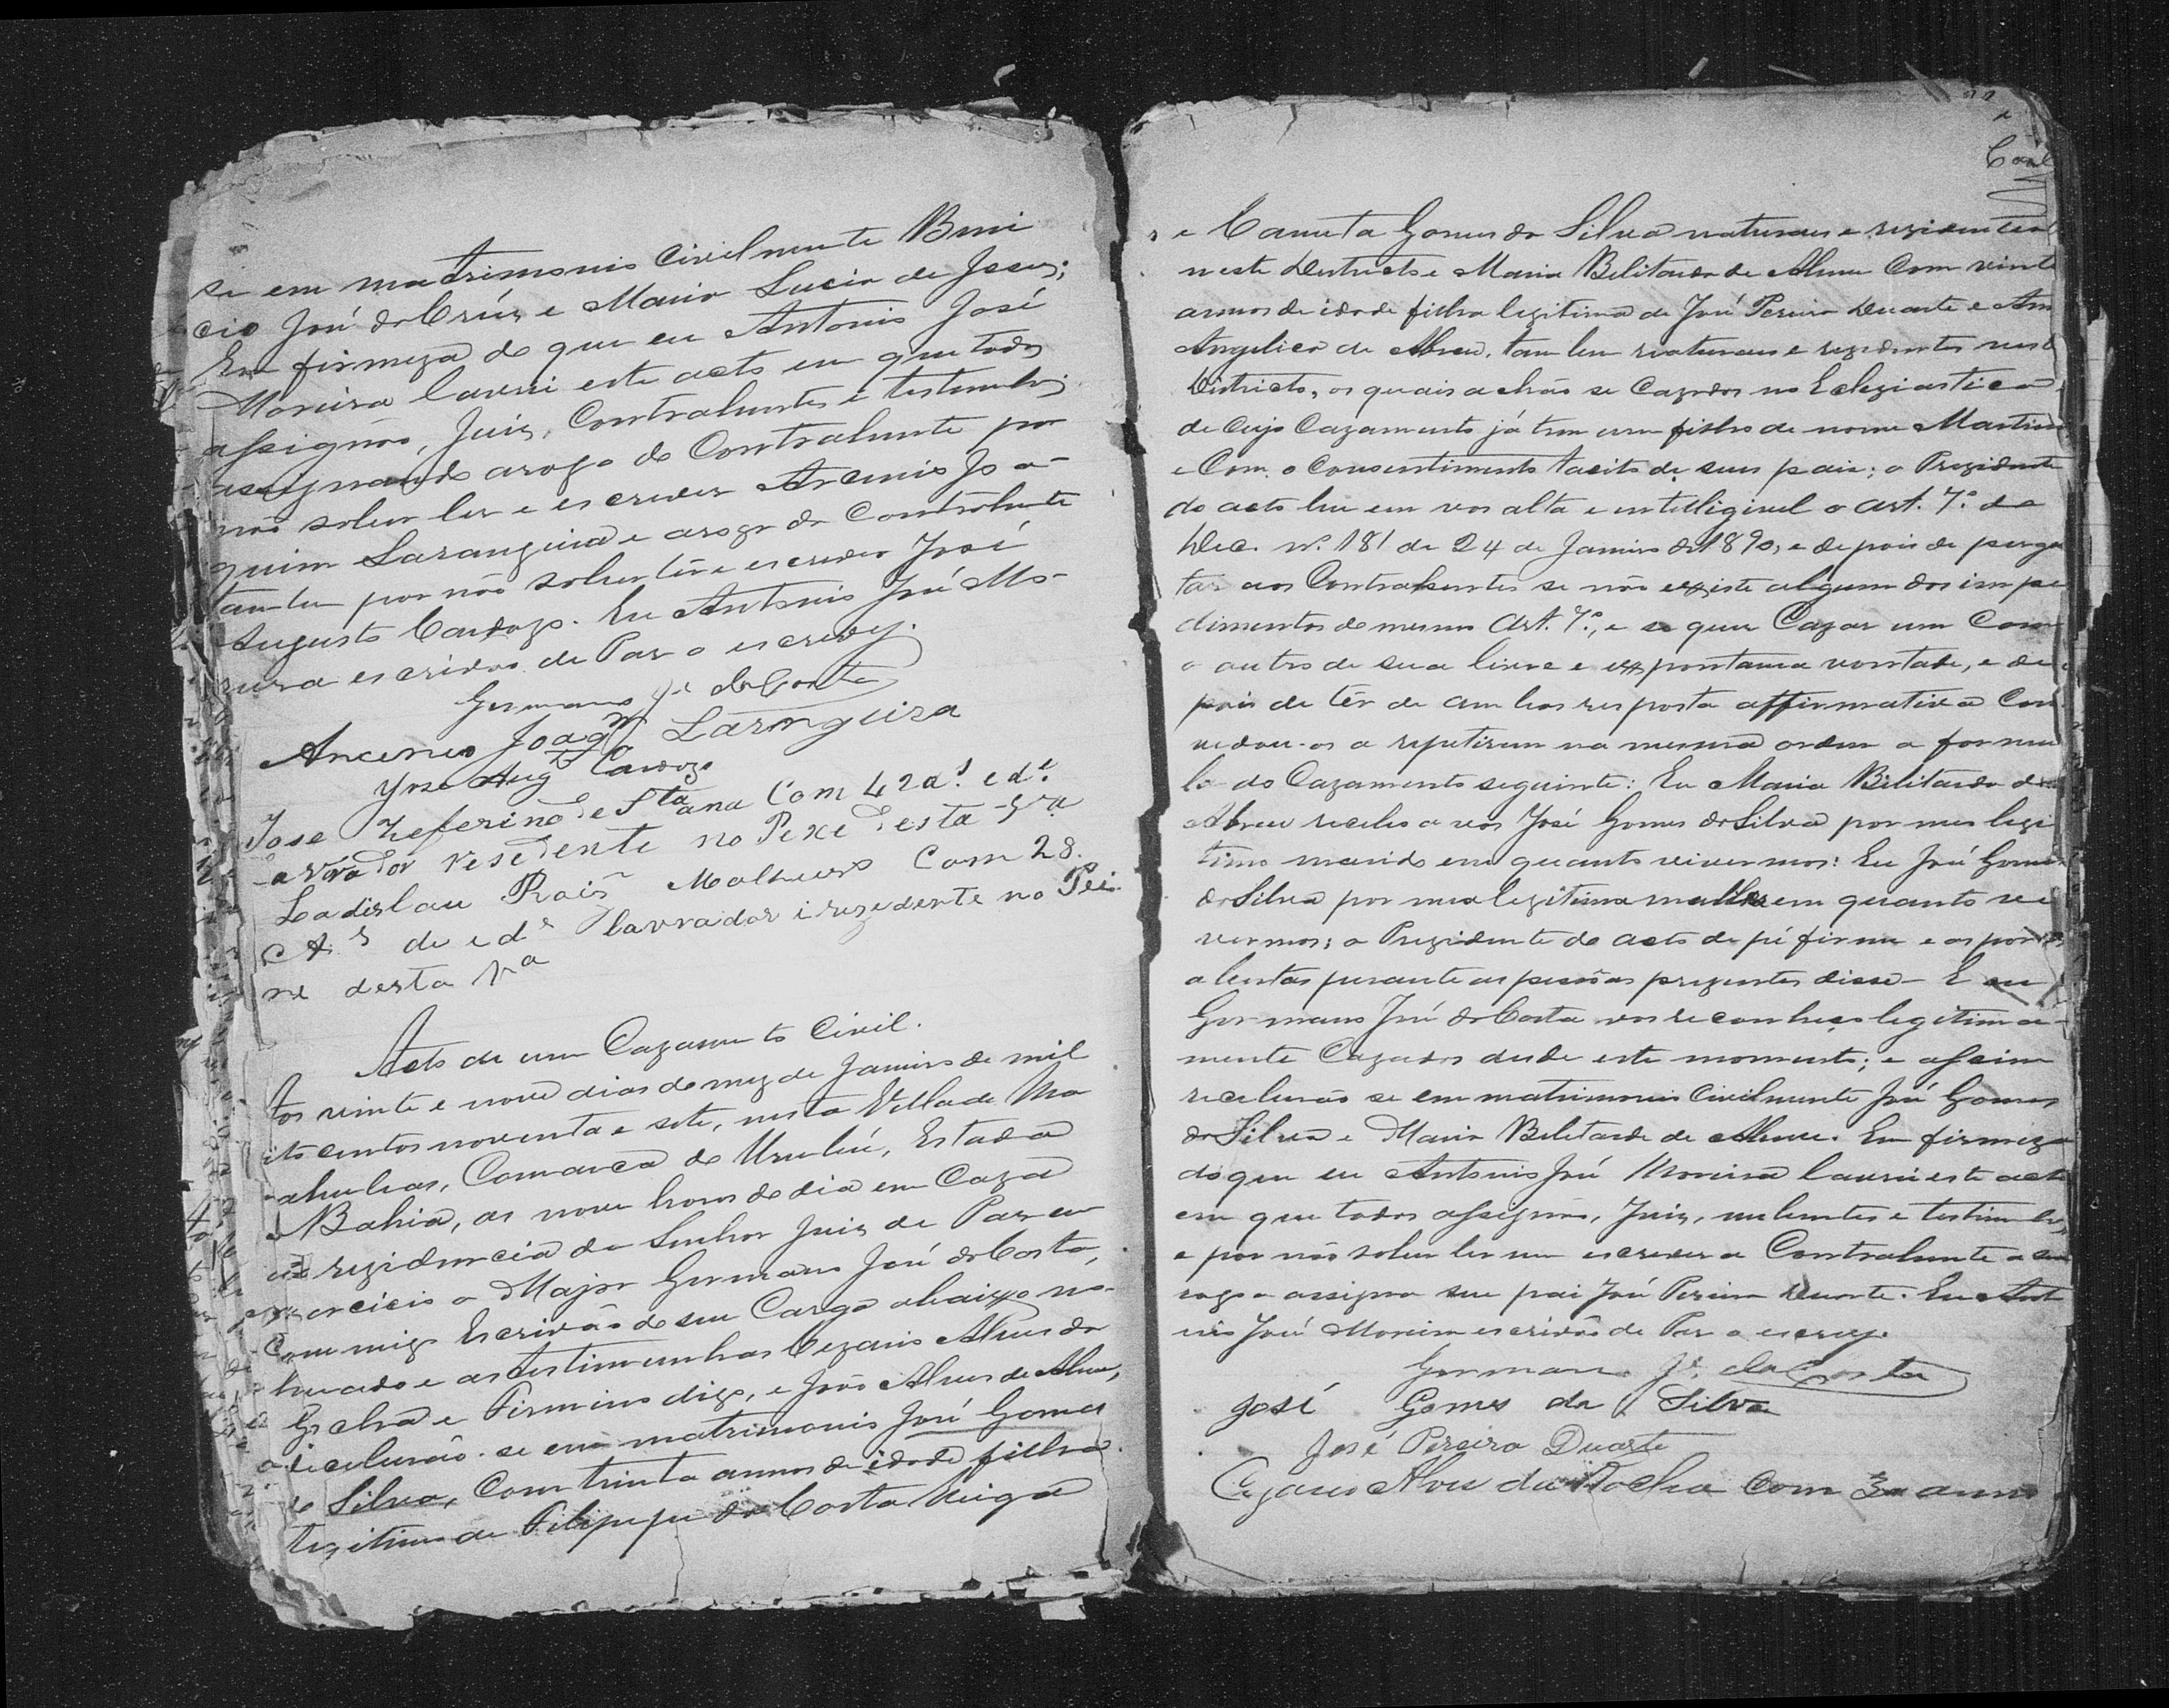 se em matrimonio civilmente Beni
cio José da Crús e Maria Lucia de Jesus;
Em firmeza do que eu Antonio José
Moreira lavrei este acto em que todos
assignão, Juis, Contrahentes e testemunhas
assignando arogo do Contrahente por
não saber ler e escrever Arcenio Joa-
quim Larangeira e arogo da Contrahente
tambem por não saber lêr e escrever José
Augusto Cardozo. Eu Antonio José Mo-
reira escrivão de Pas o escrevy.
Germano Jé. da Costa
Arcenio Joaqm Larangeira
José Augto Cardozo
Jose Zeferino de Stana Com 42 as. e de.
Lavrador resedente no Pexe desta Va
Ladislau Matheus Com 28
As de eds lavrador i rezedente no Pei
xe desta Va
Acto de um Cazamento Civil.
Aos vinte e nove dias do mez de Janeiro de mil
oito centos noventa e sete, nesta Villa de Ma
cahubas, Comarca de Urubú, Estado
da Bahia, as nove horas do dia em Caza
da rezidencia do Senhor Juis de Pas em
exercicio o Major Germano José da Costa,
Commigo Escrivão de seu Cargo abaixo no-
meado e as testimunhas Cezario Alves da
Rocha e Firmino digo, e João Alves de Abreu,
receberão-se em matrimonio José Gomes
da Silva, Com trinta annos de idade filho
legitimo de Filippe da Costa Veiga
e Canuta Gomes da Silva naturaes e rezidentes
neste Destricto e Maria Belitarda de Abreu Com vinte
annos de idade filha legitima de José Pereira Duarte e Anna
Angelica de Abreu, tambem naturaes e rezidentes neste
Districto, os quais achão se Cazados no Ecleziastico
de Cujo Cazamento já tem um filho de nome Martin
e Com o Consentimento tacito de seus pais; o Prezidente
do acto leu em vos alta e intelligivel o art. 7º. do
Dec. nº. 181 de 24 de Janeiro de 1890, e depois de pergun
tar aos Contrahentes se não existe algum dos impe
dimentos do mesmo Art. 7º., e se quer Cazar um Com
o outro de sua livre e expontania vontade, e de
pois de têr de ambos resposta affirmativa Con
vidou-os a repetirem na mesma ordem a formu
la do Cazamento seguinte: Eu Maria Bilitarda de
Abreu recebo a vos José Gomes da Silva por meu legi
timo marido em quanto vivermos: Eu José Gomes
da Silva por mea legitima mulher em quanto vi
vermos; o Prezidente do acto de pé firme e as portas
abertas perante as pessôas prezentes disse - E eu
Germano José da Costa vos reconheço legitima-
mente Cazados desde este momento; e assim
receberão se em matrimonio Civilmente José Gomes
da Silva e Maria Belitarda de Abreu. Em firmeza
do que eu Antonio José Moreira lavrei este acto
em que todos assignão, Juis, nubentes e testimunhas,
e por não saber ler nem escrever a Contrahente a seu
rogo assigna seu pai José Pereira Duarte. Eu Anto
nio José Moreira escrivão de Pas o escrevy.
Germano Jé. da Costa
José Gomes da Silva
José Pereira Duarte
Cezario Alves da Rocha Com 30 annos